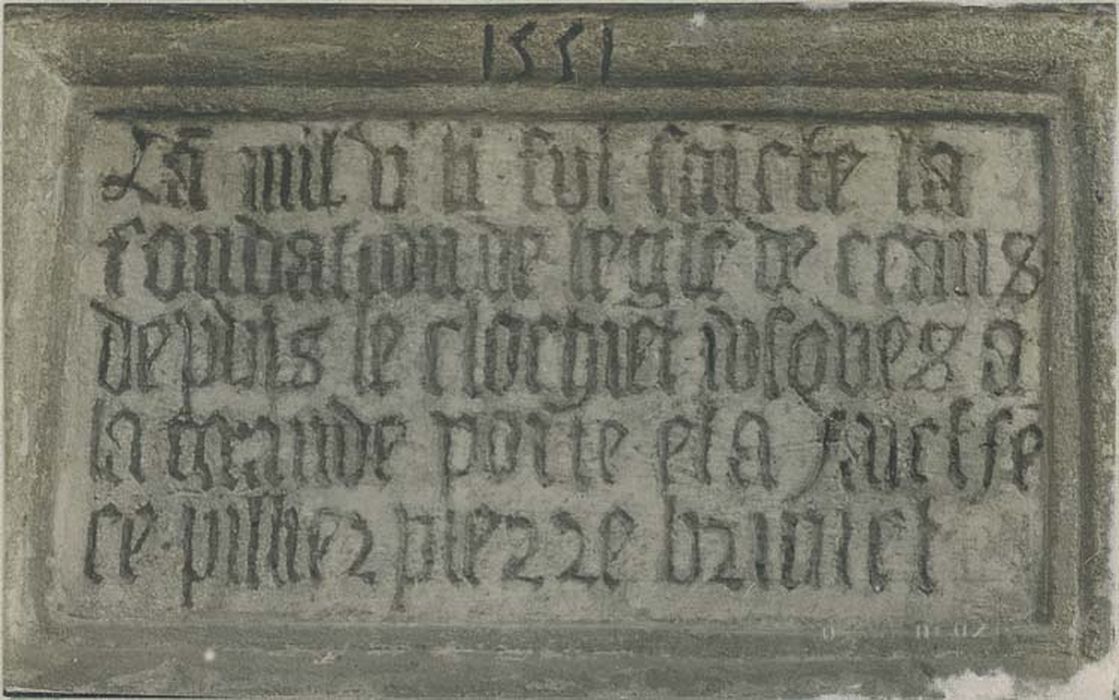 1551
Lã mil vᶜ li fut faicte la
fondation de leglē de ceans
depuis le clochiet iusques a
la grande porte et a faict fē
ce pillier pierre